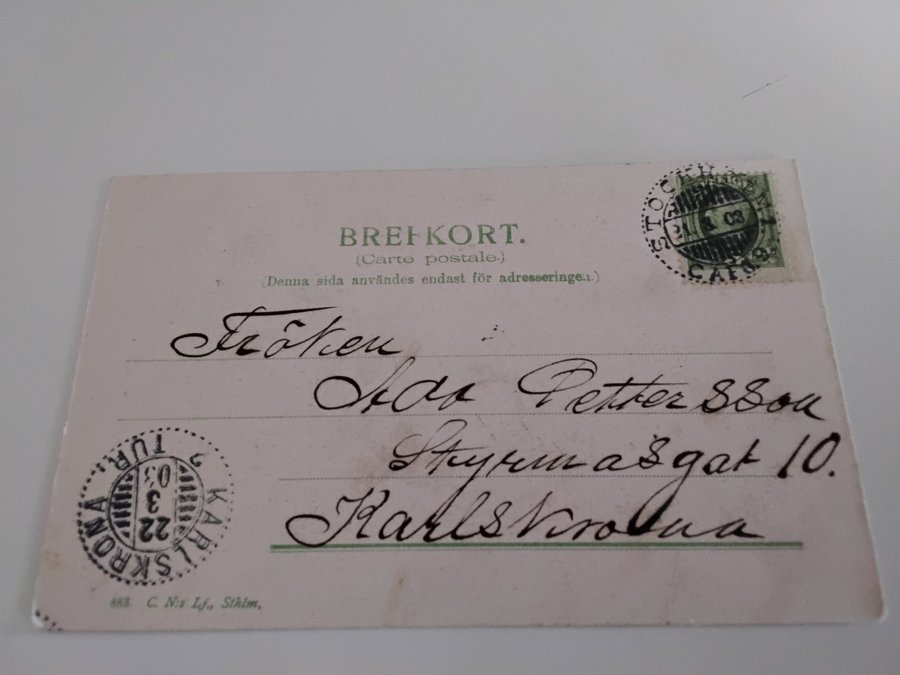 BREFKORT.
(Carte postale.)
(Denna sida användes endast för adresseringen.)
STOCKHOLM 1
21. 3. 03
Fröken
Ada Pettersson
Styrmasgat 10.
Karlskrona
KARLSKRONA
2 TUR.
22
3
03
883 C. N:s Lj., Sthlm.